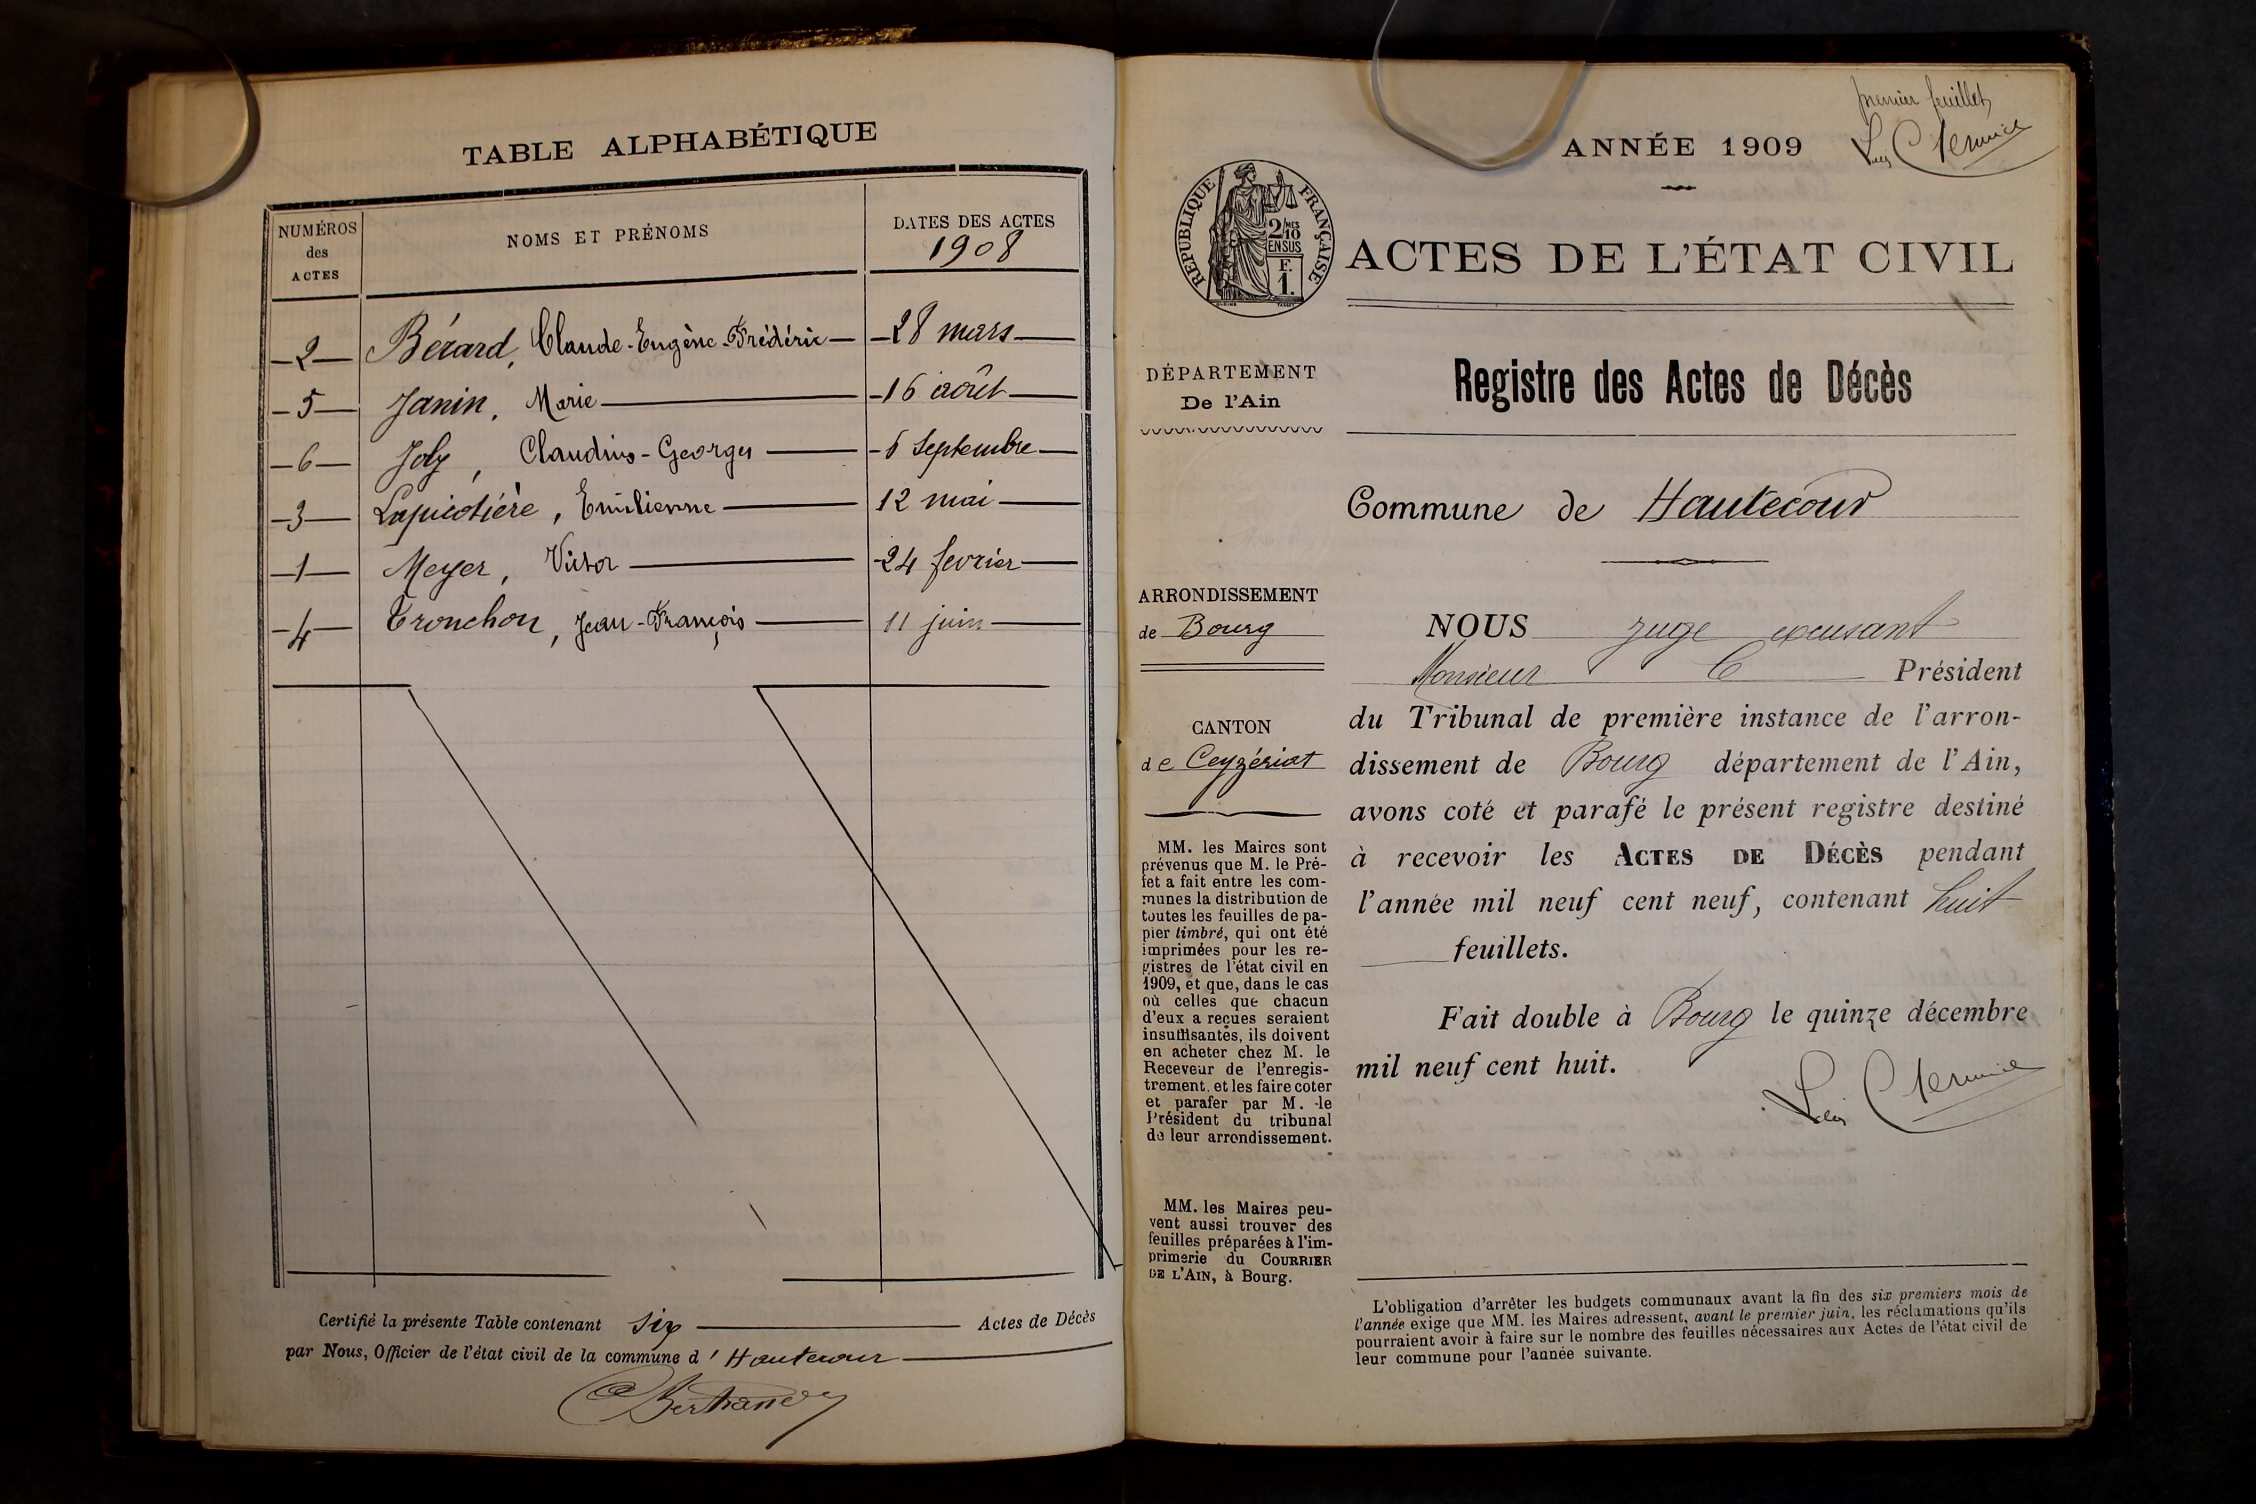 TABLE ALPHABÉTIQUE
NUMÉROS des ACTES
NOMS ET PRÉNOMS
DATES DES ACTES
1908
2 Bérard, Claude-Eugène-Frédéric 28 mars
5 Janin, Marie 16 août
6 Joly, Claudius-Georges 6 Septembre
3 Lapicotière, Emilienne 12 mai
1 Meyer, Victor 24 fevrier
4 Tronchon, Jean-François 11 juin
Certifié la présente Table contenant six Actes de Décès
par Nous, Officier de l'état civil de la commune d'Hautecour
Bertrand
premier feuillet
ANNÉE 1909
RÉPUBLIQUE FRANÇAISE
2/10MES
EN SUS
F.
1.
ACTES DE L'ÉTAT CIVIL
DÉPARTEMENT
De l'Ain
Registre des Actes de Décès
Commune de Hautecour
ARRONDISSEMENT
de Bourg
CANTON
de Ceyzériat
MM. les Maires sont
prévenus que M. le Pré-
fet a fait entre les com-
munes la distribution de
toutes les feuilles de pa-
pier timbré, qui ont été
imprimées pour les re-
gistres de l'état civil en
1909, et que, dans le cas
où celles que chacun
d'eux a reçues seraient
insuffisantes, ils doivent
en acheter chez M. le
Receveur de l'enregis-
trement, et les faire coter
et parafer par M. le
Président du tribunal
de leur arrondissement.
MM. les Maires peu-
vent aussi trouver des
feuilles préparées à l'im-
primerie du COURRIER
DE L'AIN, à Bourg.
NOUS juge excusant
Monsieur le Président
du Tribunal de première instance de l'arron-
dissement de Bourg département de l'Ain,
avons coté et parafé le présent registre destiné
à recevoir les ACTES DE DÉCÈS pendant
l'année mil neuf cent neuf, contenant huit
feuillets.
Fait double à Bourg le quinze décembre
mil neuf cent huit.
L'obligation d'arrêter les budgets communaux avant la fin des six premiers mois de
l'année exige que MM. les Maires adressent, avant le premier juin, les réclamations qu'ils
pourraient avoir à faire sur le nombre des feuilles nécessaires aux Actes de l'état civil de
leur commune pour l'année suivante.